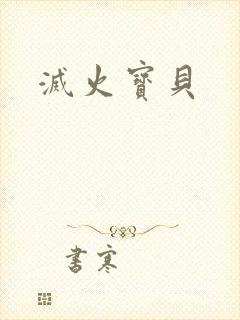 滅火寶貝
書寒